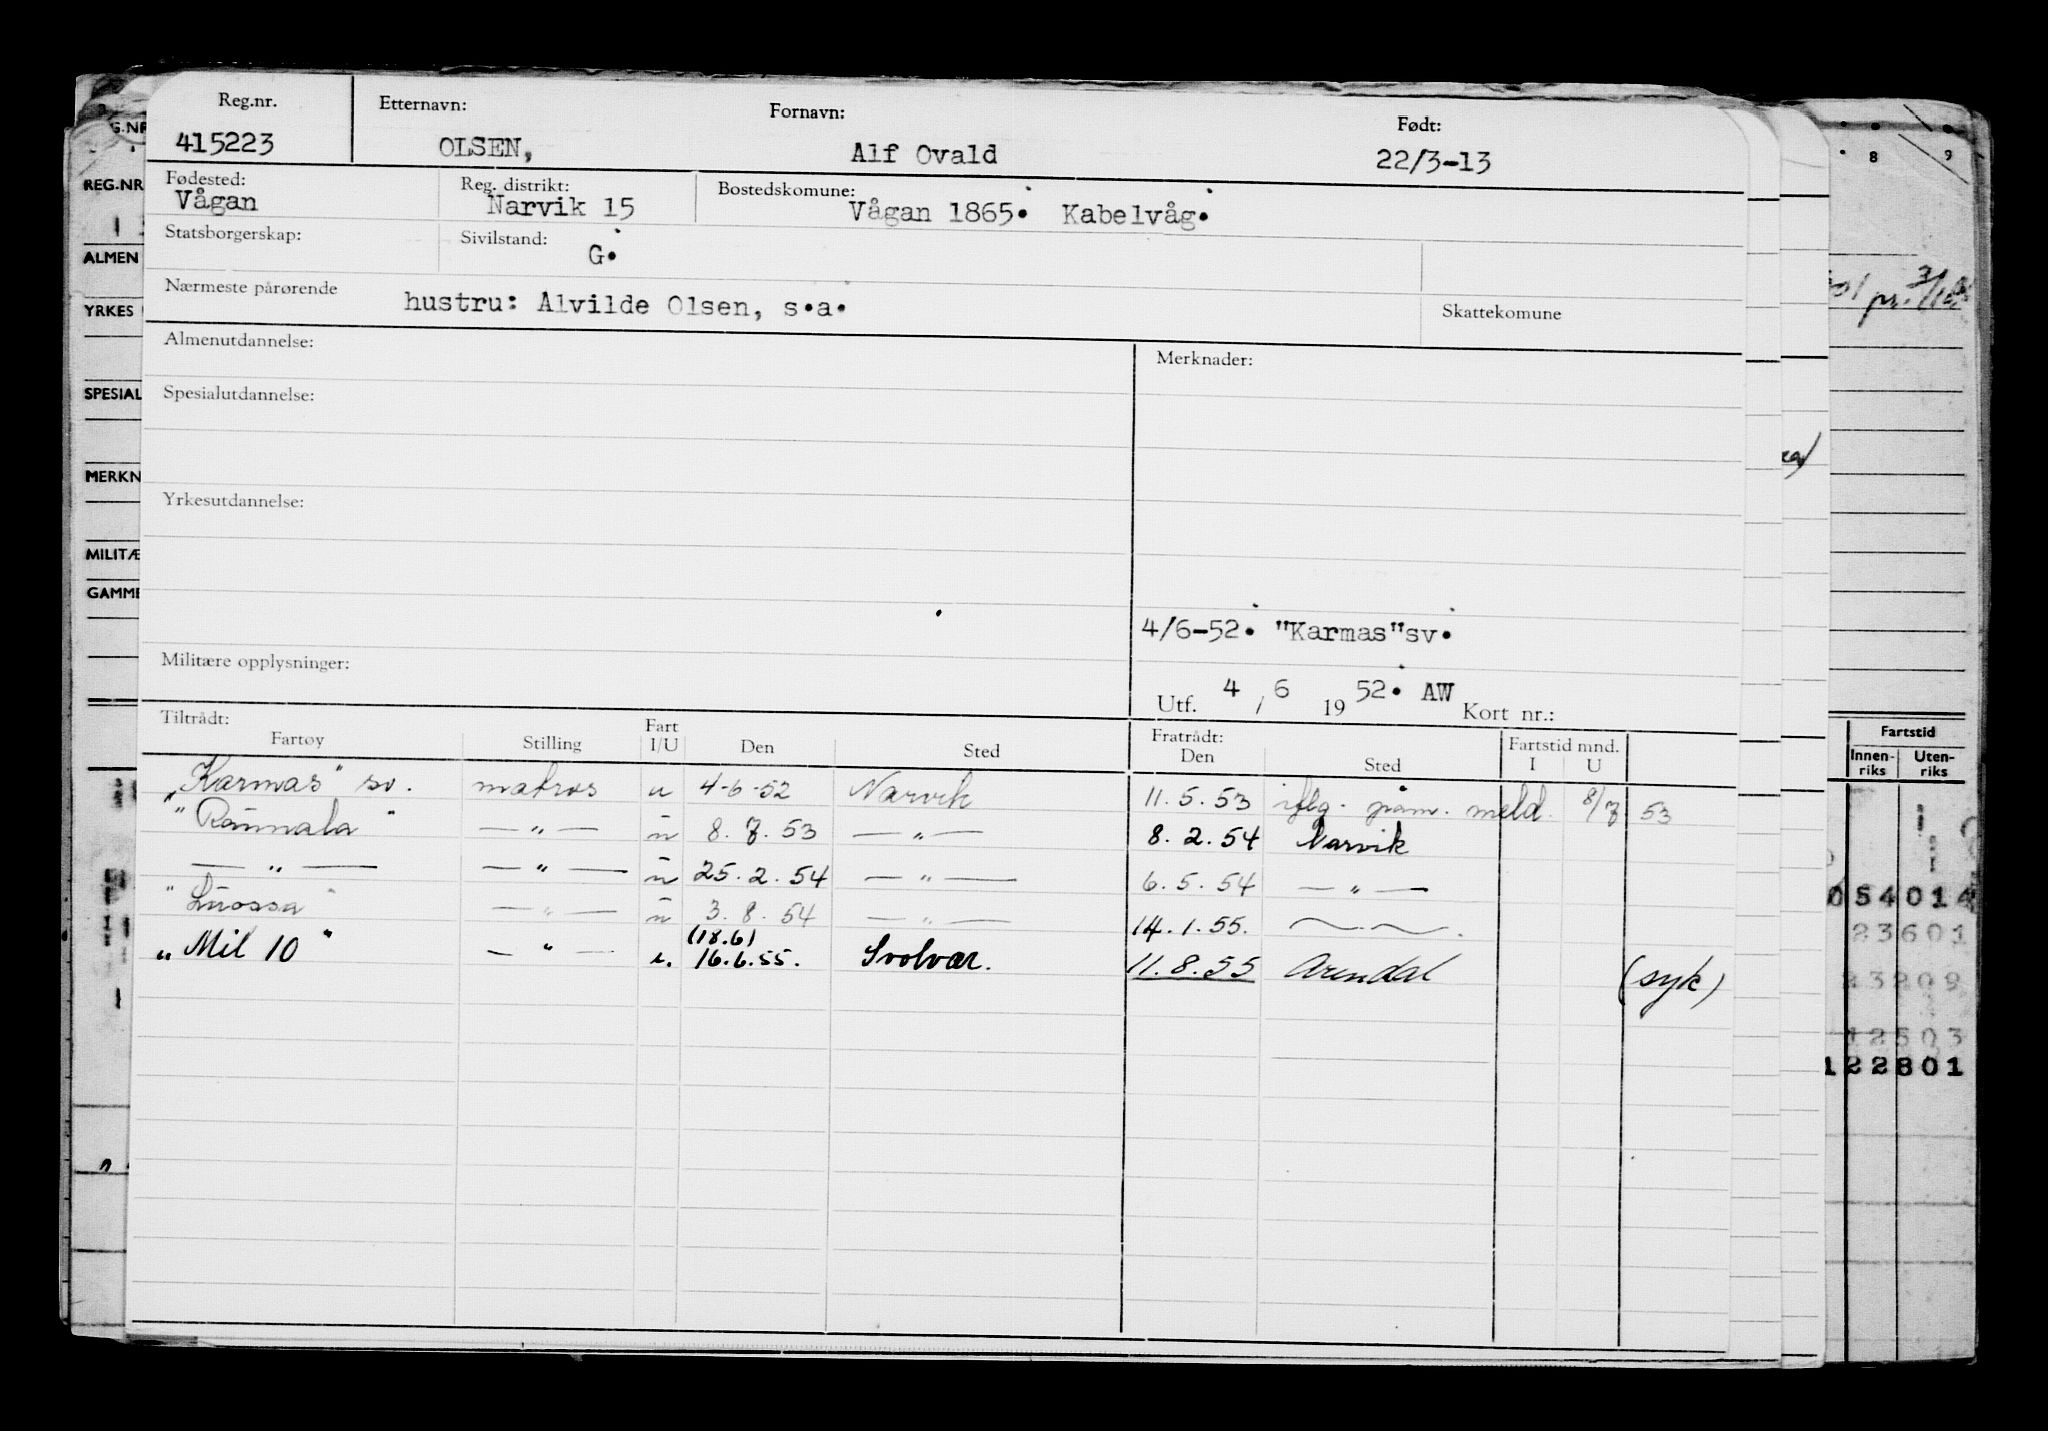 Reg.nr. Etternavn: Fornavn: Født:
415223 OLSEN, Alf Ovald 22/3-13
Fødested: Reg. distrikt: Bostedskomune:
Vågan Narvik 15 Vågan 1865. Kabelvåg.
Statsborgerskap: Sivilstand: G.
Nærmeste pårørende hustru: Alvilde Olsen, s.a. Skattekomune
Almenutdannelse: Merknader:
Spesialutdannelse:
Yrkesutdannelse:
4/6-52. "Karmas"sv.
Militære opplysninger:
Utf. 4 / 6 19 52. AW Kort nr.:
Tiltrådt: Fratrådt:
Fartøy Stilling Fart I/U Den Sted Den Sted Fartstid mnd. I U
"Karmas" sv. matros u 4-6-52 Narvik 11.5.53 iflg. påm. meld. 8/7 53
"Rännala" — " — u 8.7.53 — " — 8.2.54 Narvik
— " — — " — u 25.2.54 — " — 6.5.54 — " —
"Luossa" — " — u 3.8.54 — " — 14.1.55.
(18.6)
"Mil 10" — " — i. 16.6.55. Svolvær. 11.8.55 Arendal (syk)
REG.NR
ALMEN
YRKES
SPESIAL
MERKN
MILITÆ
GAMME
8 9
Fartstid
Innen-riks Uten-riks
54014
23601
23209
12503
122801